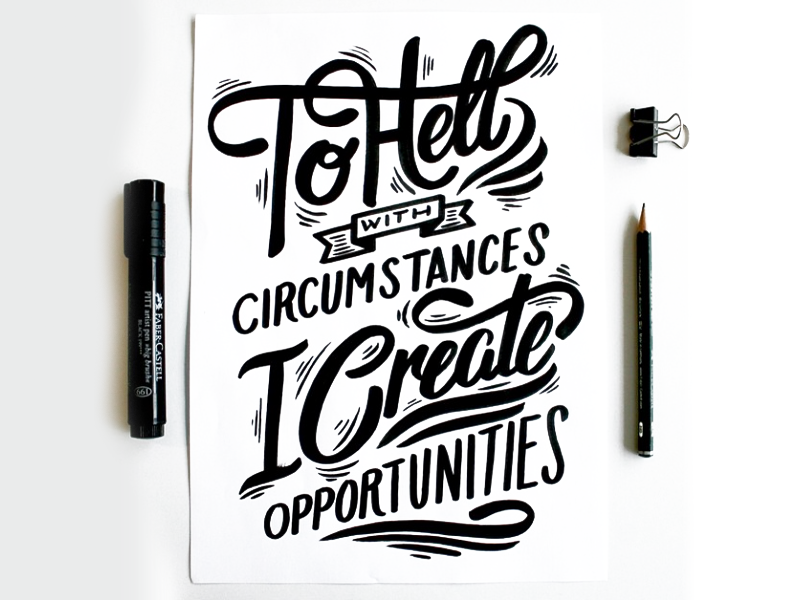 To Hell
WITH
CIRCUMSTANCES
I Create
OPPORTUNITIES
FABER-CASTELL
PITT artist pen »big brush«